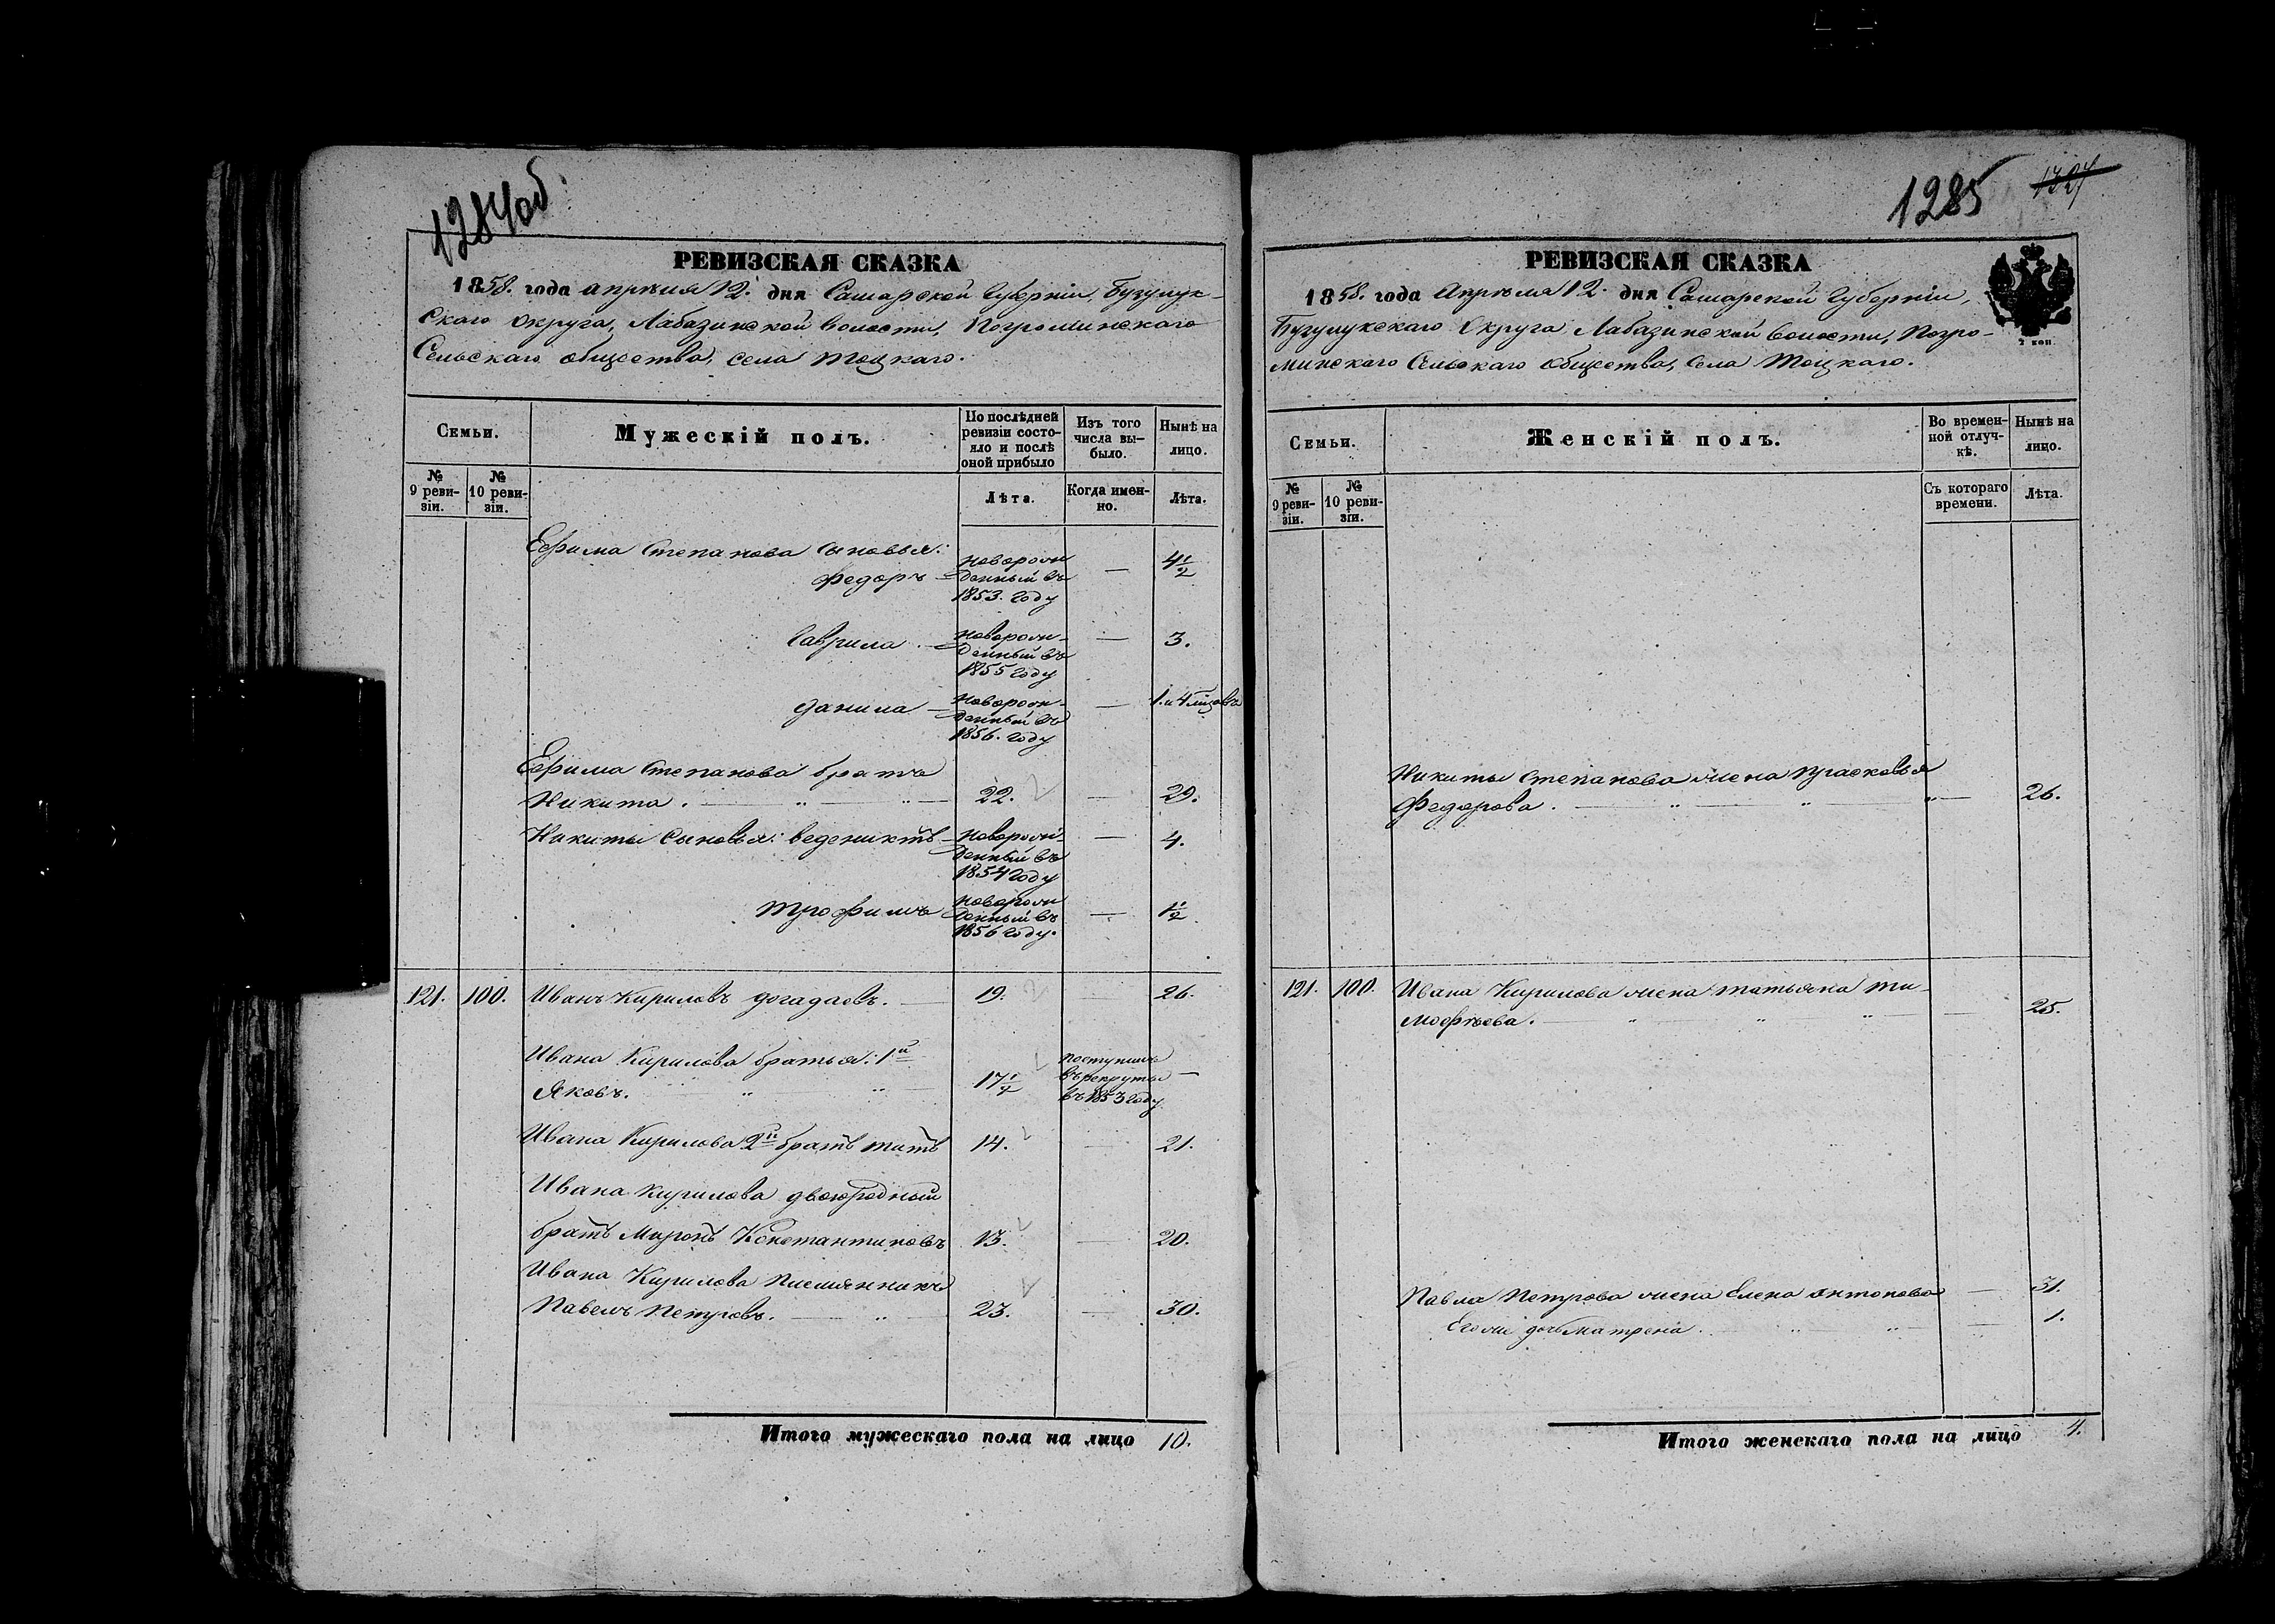 1284об
РЕВИЗСКАЯ СКАЗКА
1858. года апрѣля 12. дня Самарской Губерніи, Бузулук-
скаго округа, Лабазинской волости, Погроминскаго
Сельскаго общества, села Тоцкаго.
Семьи.
Мужескій полъ.
По послѣдней
ревизіи состо-
яло и послѣ
оной прибыло
Изъ того
числа вы-
было.
Нынѣ на
лицо.
№
9 реви-
зіи.
№
10 реви-
зіи.
Лѣта.
Когда имен-
но.
Лѣта.
Ефима Степанова сыновья:
Федоръ — новорож
денный въ
1853. году — 4½
Гаврила — новорож-
денный въ
1855 году — 3.
Данила — новорож-
денный въ
1856. году — 1. и 4 мѣсяцовъ
Ефима Степанова братъ
Никита. — „ — „ — 22. — 29.
Никиты сыновья: веденикть — новорож-
денный въ
1854 году — 4.
Трофимъ — новорож
денный въ
1856 году. — 1½
121. 100. Иванъ Кириловъ догадаовъ. — 19. 26.
Ивана Кирилова братья: 1й
Яковъ. „ „ — 17½ поступилъ
въ рекруты —
въ 1853 году
Ивана Кирилова 2й братъ титъ 14. — 21.
Ивана Кирилова двоюродный
братъ Миронъ Константиновъ 13. — 20.
Ивана Кирилова племянникъ
Павелъ Петровъ. — „ — 23. — 30.
Итого мужескаго пола на лицо 10.
1285 1327
РЕВИЗСКАЯ СКАЗКА
1858. года Апрѣля 12. дня Самарской Губерніи,
Бузулукскаго Округа Лабазинской волости, Погро-
минскаго Сельскаго общества, села Тоцкаго.
2 коп.
Семьи.
Женскій полъ.
Во времен-
ной отлуч-
кѣ.
Нынѣ на
лицо.
№
9 реви-
зіи.
№
10 реви-
зіи.
Съ котораго
времени.
Лѣта.
Никиты Степанова жена Прасковья
Федорова. — „ — „ — „ — 26.
121. 100. Ивана Кирилова жена татьяна ти-
мофѣева. — „ — „ — „ — 25.
Павла Петрова жена Елена антонова — 31.
Его же дочь Матрена. — „ — „ — 1.
Итого женскаго пола на лицо 4.